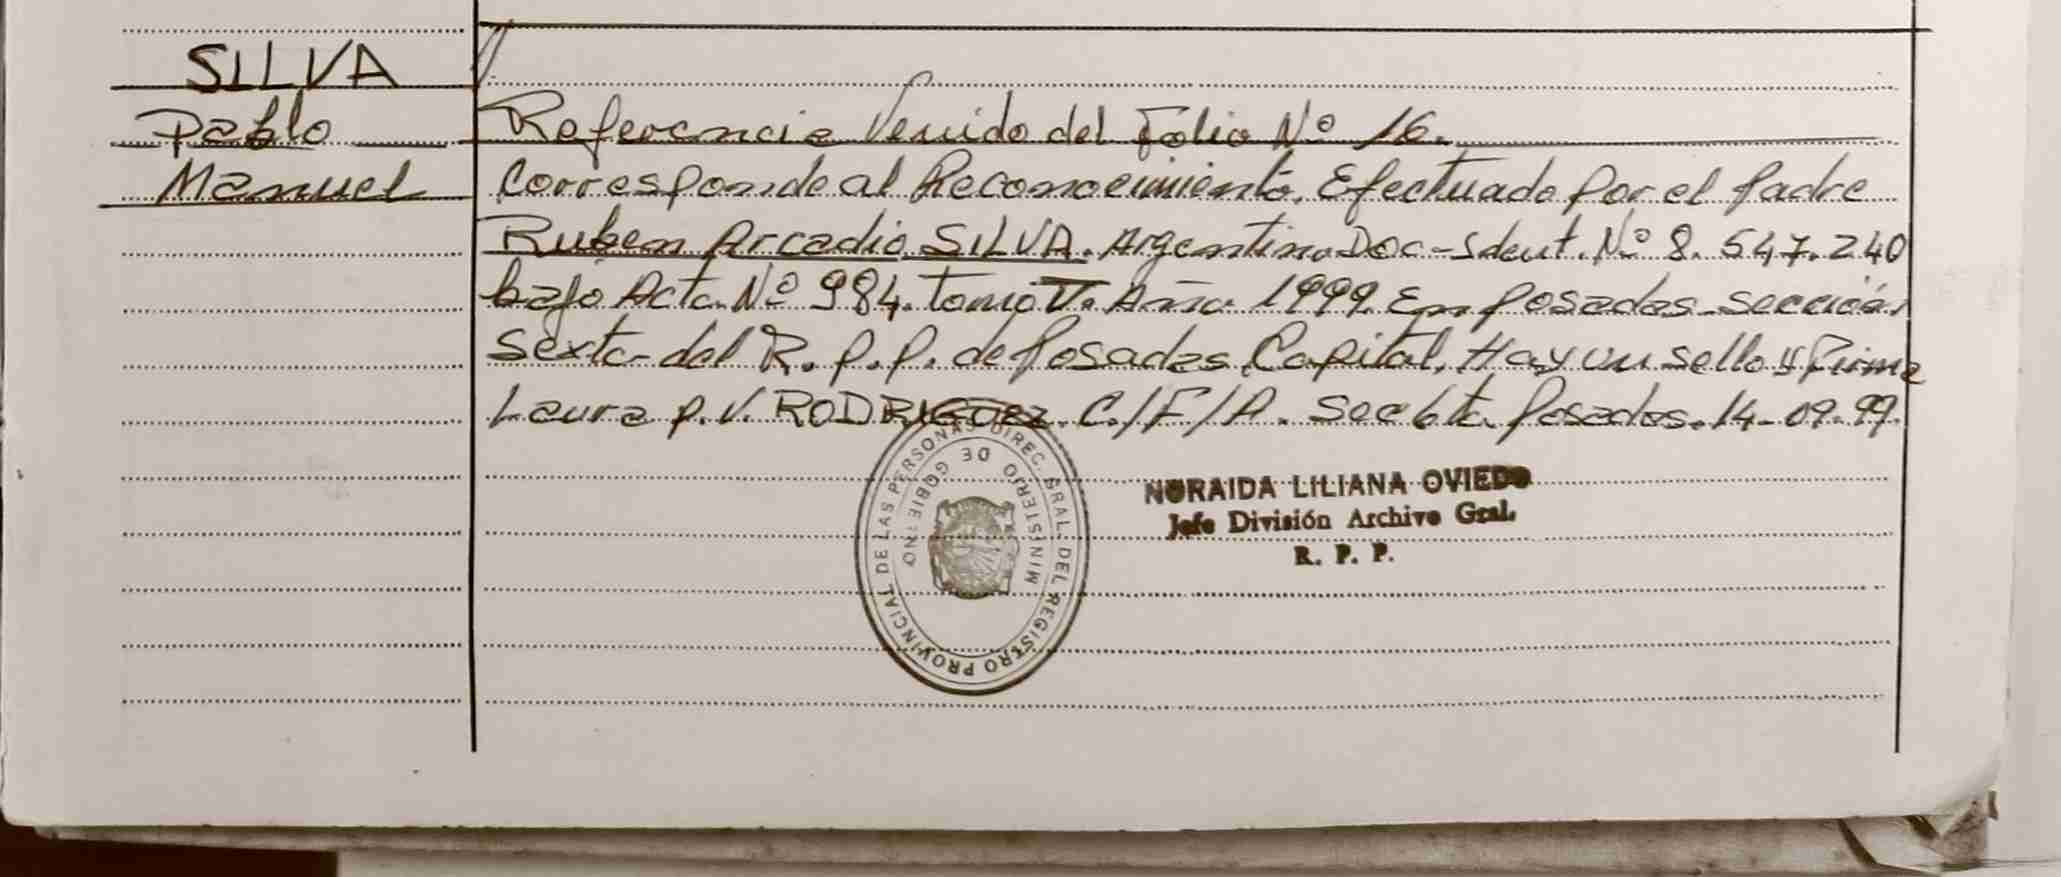 SILVA
Pablo
Manuel
Referencia Venido del Folio Nº 16.
Corresponde al Reconocimiento. Efectuado por el padre
Ruben Arcadio SILVA. Argentino Doc-Ident. Nº 8.547.240
bajo Acta Nº 984. tomo V. Año 1999. En Posadas. sección
Sexta del R.P.P. de Posadas, Capital, Hay un sello y firma
Laura P.V. RODRIGUEZ. C./F/A. Sec 6ta. Posadas. 14-09-99.
DIREC. GRAL. DEL REGISTRO PROVINCIAL DE LAS PERSONAS
MINISTERIO DE GOBIERNO
NORAIDA LILIANA OVIEDO
Jefe División Archivo Gral.
R. P. P.